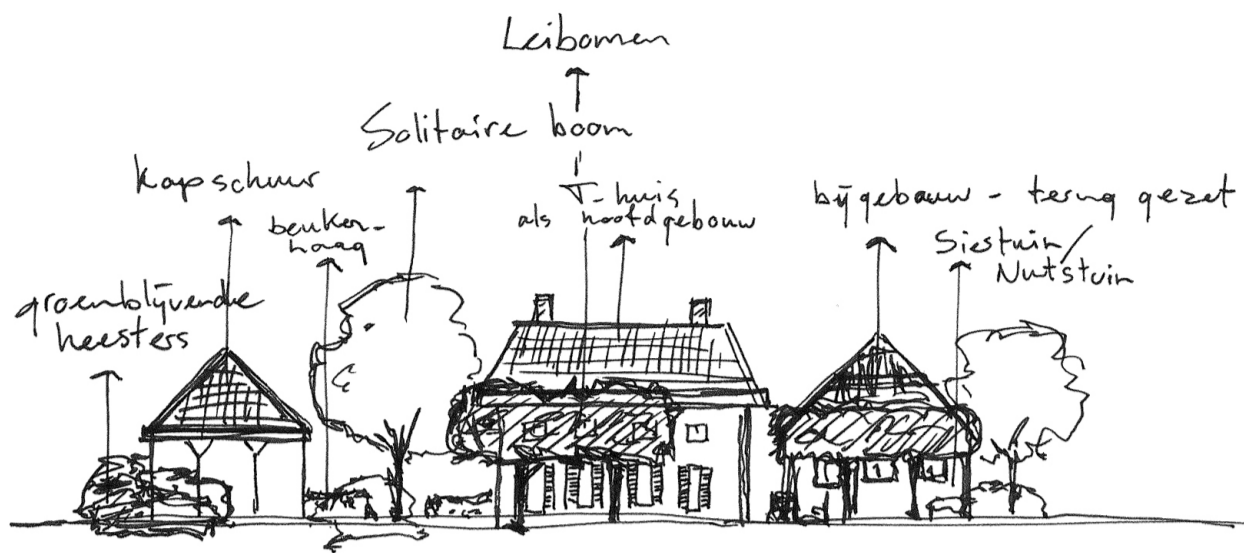 Leibomen
Solitaire boom
Kapschuur
T-huis
als hoofdgebouw
bijgebouw - terug gezet
beuken-
haag
Siestuin/
Nutstuin
groenblijvende
heesters